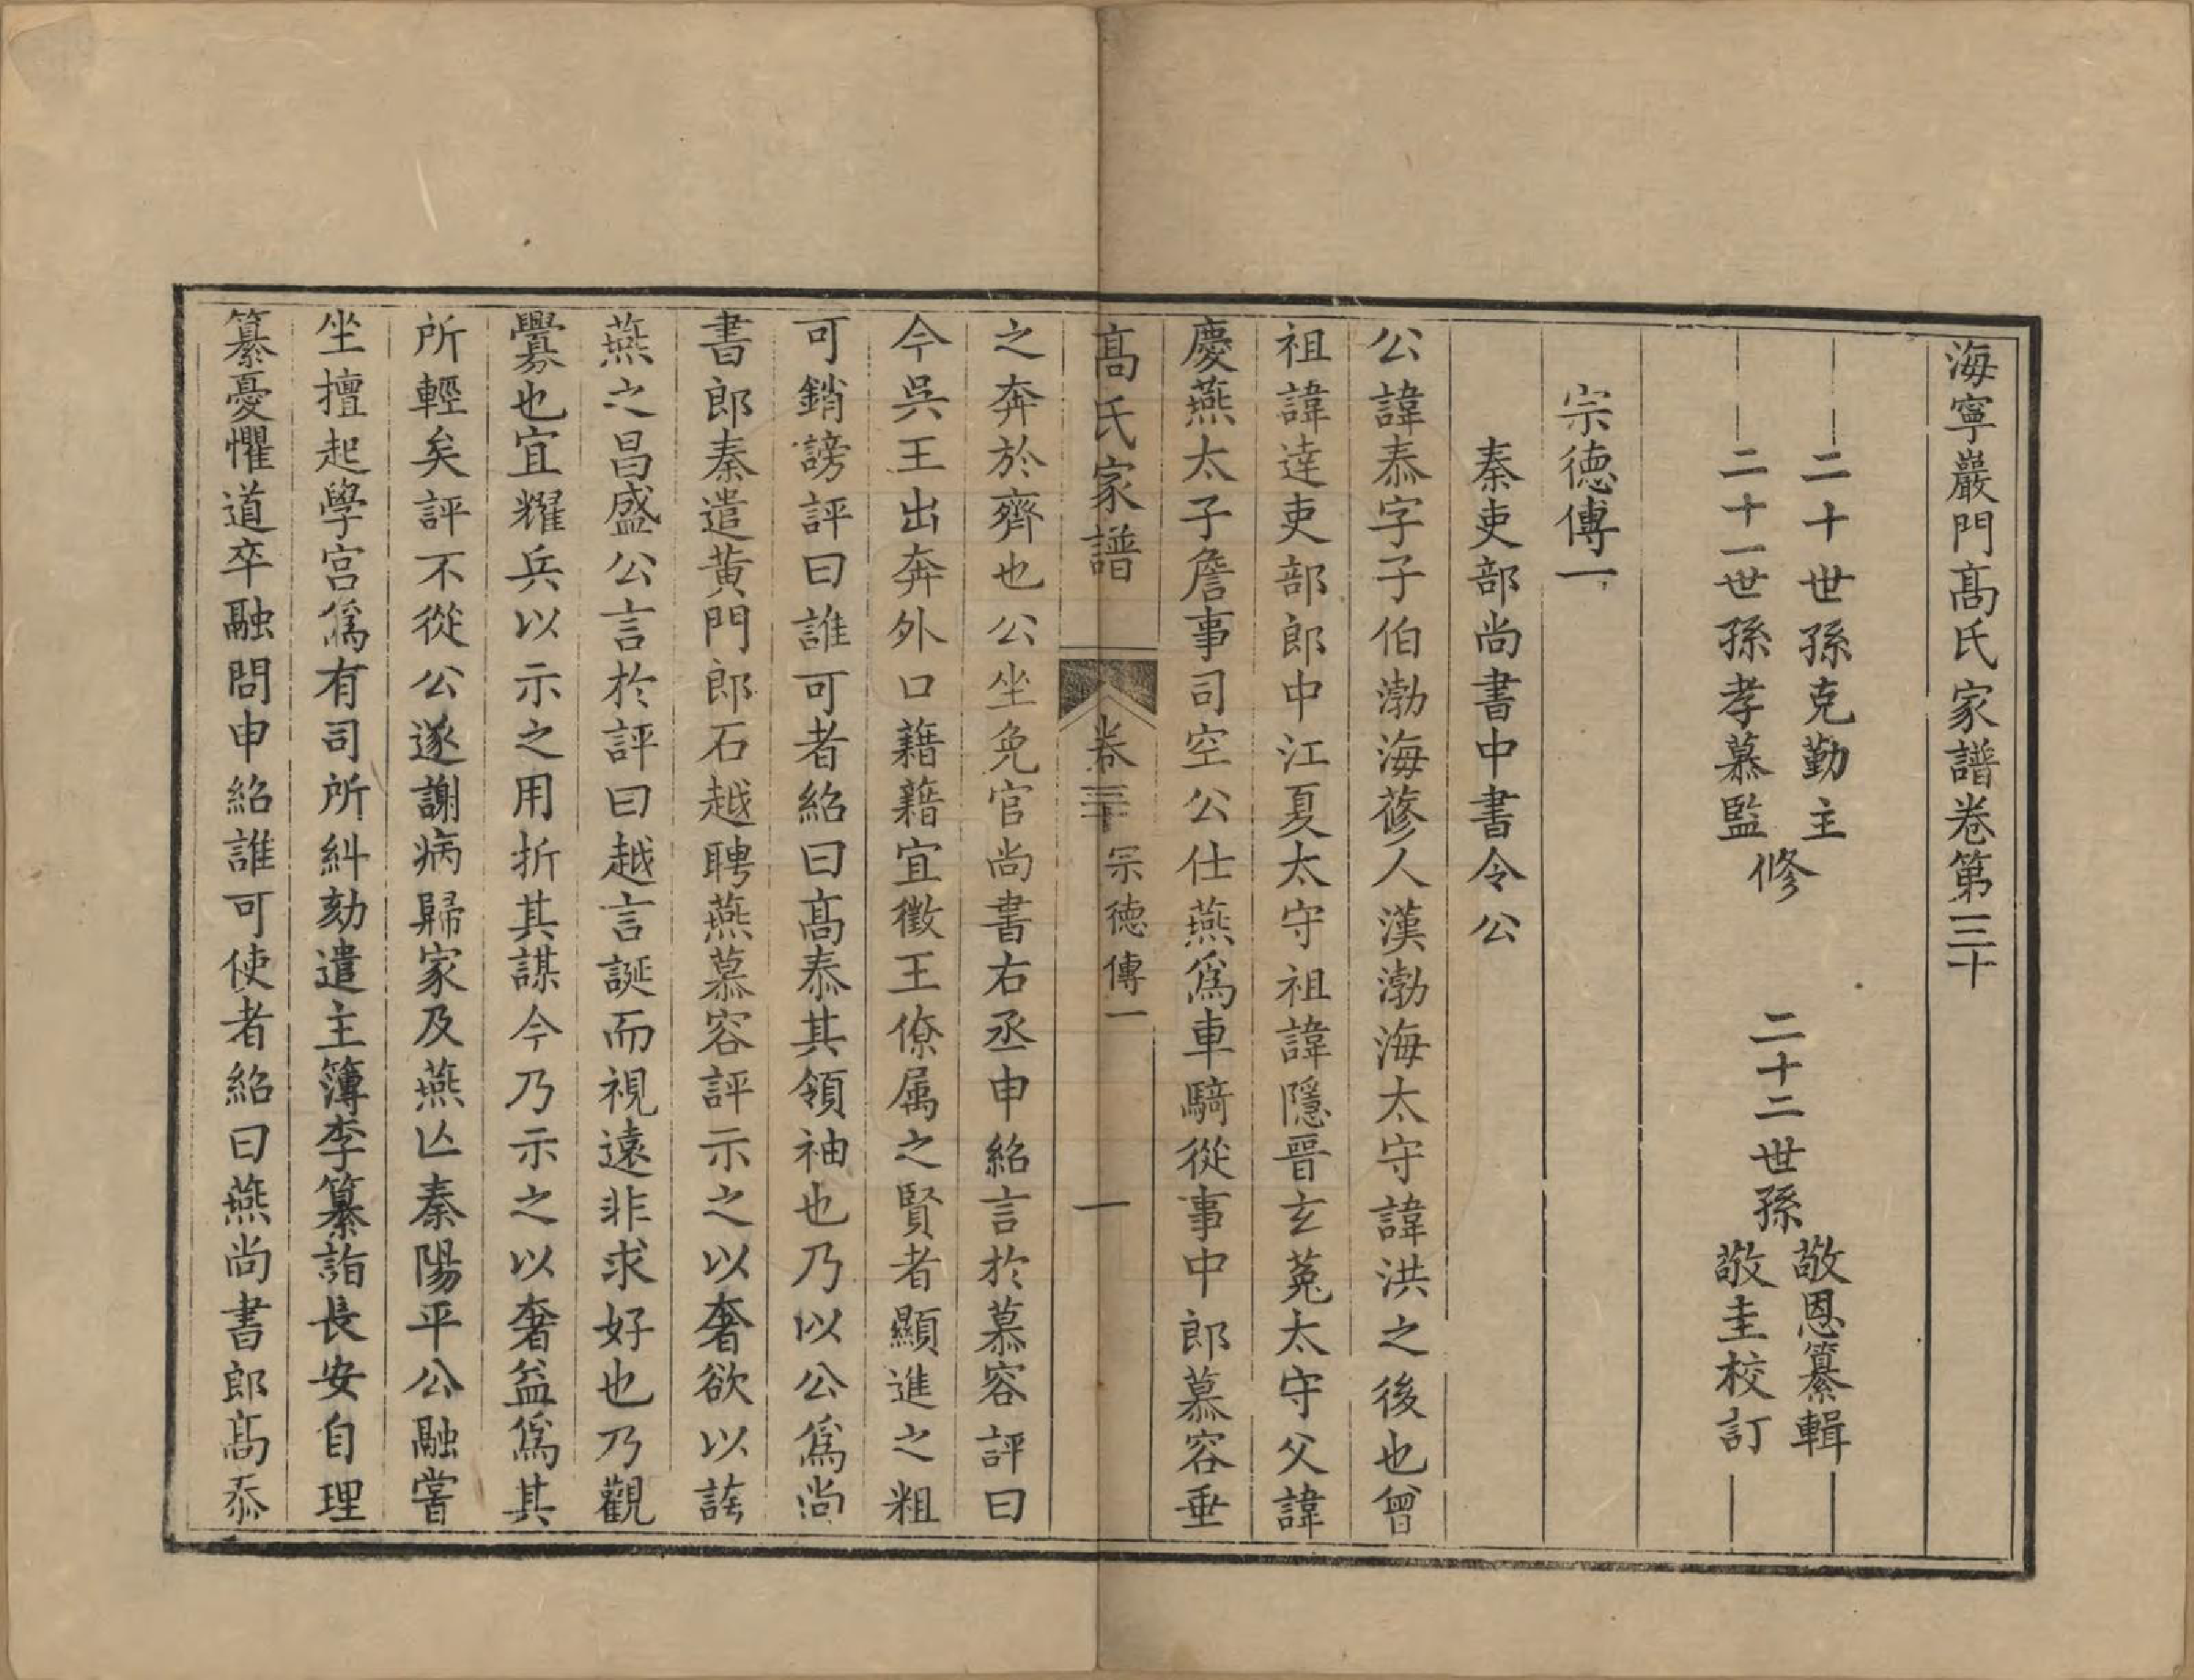 海寧巖門髙氏家譜卷第三十
二十世孫克勤主
二十一世孫孝慕監
修
二十二世孫
敬恩纂輯
敬圭校訂
宗德傳一
秦吏部尚書中書令公
公諱泰字子伯渤海蓨人漢渤海太守諱洪之後也曾
祖諱達吏部郎中江夏太守祖諱隱晉玄菟太守父諱
慶燕太子詹事司空公仕燕爲車騎從事中郎慕容垂
髙氏家譜
卷三十
宗德傳一
一
之奔於齊也公坐免官尚書右丞申紹言於慕容評曰
今吳王出奔外口藉藉宜徵王僚属之賢者顯進之粗
可銷謗評曰誰可者紹曰髙泰其領袖也乃以公爲尚
書郎秦遣黄門郎石越聘燕慕容評示之以奢欲以誇
燕之昌盛公言於評曰越言誕而視遠非求好也乃觀
釁也宜耀兵以示之用折其謀今乃示之以奢益爲其
所輕矣評不從公遂謝病歸家及燕亾秦陽平公融嘗
坐擅起學宫爲有司所糾劾遣主簿李纂詣長安自理
纂憂懼道卒融問申紹誰可使者紹曰燕尚書郎髙泰